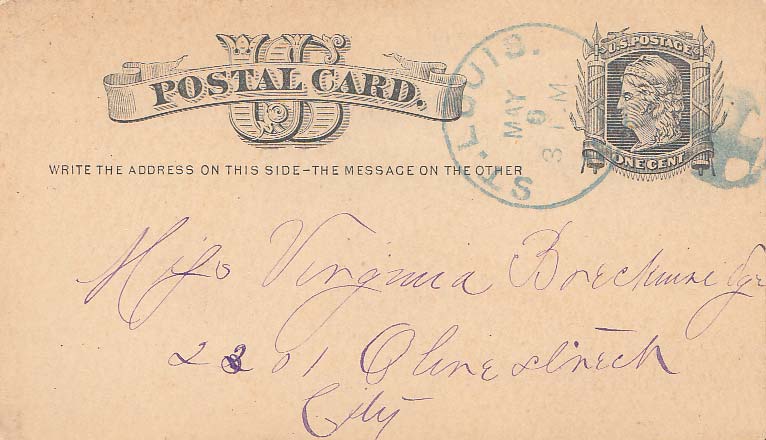 US
POSTAL CARD.
U.S. POSTAGE
ONE CENT
ST. LOUIS.
MAY
6
3 P.M.
WRITE THE ADDRESS ON THIS SIDE-THE MESSAGE ON THE OTHER
Miss Virginia Breckinridge
2201 Olive Street
City